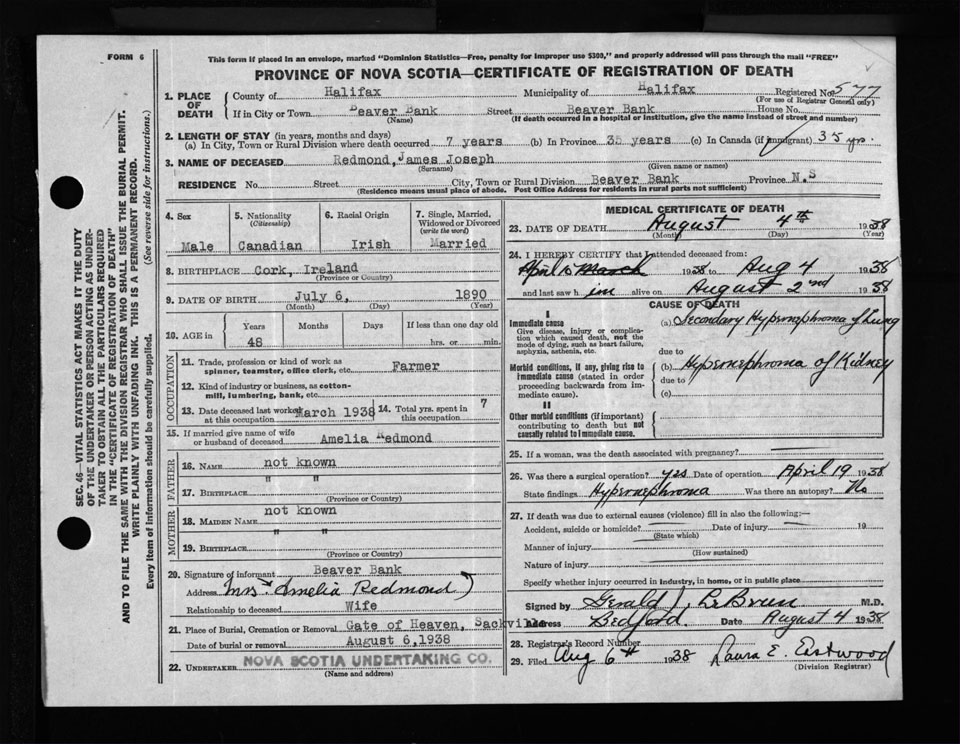 FORM 6
This form if placed in an envelope, marked "Dominion Statistics—Free, penalty for improper use $300," and properly addressed will pass through the mail "FREE"
PROVINCE OF NOVA SCOTIA—CERTIFICATE OF REGISTRATION OF DEATH
1. PLACE OF DEATH County of Halifax Municipality of Halifax Registered No. 577
(For use of Registrar General only)
If in City or Town Beaver Bank Street Beaver Bank House No.
(Name) (If death occurred in a hospital or institution, give the name instead of street and number)
2. LENGTH OF STAY (in years, months and days)
(a) In City, Town or Rural Division where death occurred 7 years (b) In Province 35 years (c) In Canada (if immigrant) 35 yrs.
3. NAME OF DECEASED Redmond, James Joseph
(Surname) (Given name or names)
RESIDENCE No. Street City, Town or Rural Division Beaver Bank Province N.S
(Residence means usual place of abode. Post Office Address for residents in rural parts not sufficient)
4. Sex 5. Nationality (Citizenship) 6. Racial Origin 7. Single, Married, Widowed or Divorced (write the word)
Male Canadian Irish Married
8. BIRTHPLACE Cork, Ireland
(Province or Country)
9. DATE OF BIRTH July 6, 1890
(Month) (Day) (Year)
10. AGE in Years Months Days If less than one day old
48 hrs. or min.
OCCUPATION
11. Trade, profession or kind of work as spinner, teamster, office clerk, etc. Farmer
12. Kind of industry or business, as cotton-mill, lumbering, bank, etc.
13. Date deceased last worked at this occupation March 1938 14. Total yrs. spent in this occupation 7
15. If married give name of wife or husband of deceased Amelia Redmond
FATHER
16. NAME not known
17. BIRTHPLACE " "
(Province or Country)
MOTHER
18. MAIDEN NAME not known
19. BIRTHPLACE " "
(Province or Country)
20. Signature of informant Beaver Bank
Address Mrs Amelia Redmond
Relationship to deceased Wife
21. Place of Burial, Cremation or Removal Gate of Heaven, Sackville
Date of burial or removal August 6, 1938
22. UNDERTAKER NOVA SCOTIA UNDERTAKING CO.
(Name and address)
MEDICAL CERTIFICATE OF DEATH
23. DATE OF DEATH August 4th 1938
(Month) (Day) (Year)
24. I HEREBY CERTIFY that I attended deceased from:
April 10 March 1938 to Aug 4 1938
and last saw h im alive on August 2nd 1938
CAUSE OF DEATH
I
Immediate cause (a) Secondary Hypernephroma of Lung
Give disease, injury or complication which caused death, not the mode of dying, such as heart failure, asphyxia, asthenia, etc.
due to
Morbid conditions, if any, giving rise to immediate cause (stated in order proceeding backwards from immediate cause). (b) Hypernephroma of Kidney
due to
(c)
II
Other morbid conditions (if important) contributing to death but not causally related to immediate cause.
25. If a woman, was the death associated with pregnancy?
26. Was there a surgical operation? yes Date of operation April 19 1938
State findings Hypernephroma Was there an autopsy? No
27. If death was due to external causes (violence) fill in also the following:—
Accident, suicide or homicide? Date of injury 19
(State which)
Manner of injury
(How sustained)
Nature of injury
Specify whether injury occurred in industry, in home, or in public place
Signed by Gerald J. LeBrun M.D.
Address Bedford. Date August 4 1938
28. Registrar's Record Number
29. Filed Aug 6th 1938 Laura E. Eastwood
(Division Registrar)
SEC. 46—VITAL STATISTICS ACT MAKES IT THE DUTY
OF THE UNDERTAKER OR PERSON ACTING AS UNDER-
TAKER TO OBTAIN ALL THE PARTICULARS REQUIRED
IN THE "CERTIFICATE OF REGISTRATION OF DEATH"
AND TO FILE THE SAME WITH THE DIVISION REGISTRAR WHO SHALL ISSUE THE BURIAL PERMIT.
WRITE PLAINLY WITH UNFADING INK. THIS IS A PERMANENT RECORD.
Every item of information should be carefully supplied. (See reverse side for instructions.)